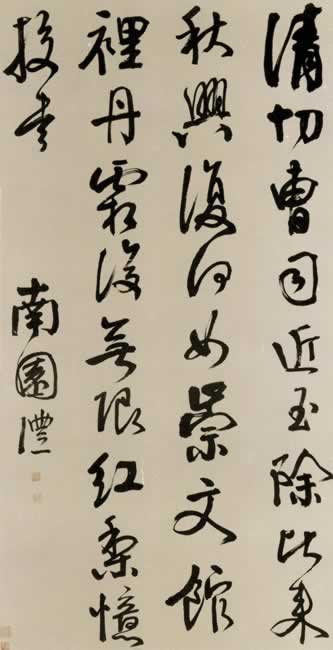 清切曹司近玉除比来
秋興復何如崇文館
裡丹霜後無限紅梨憶
校書
南園灃